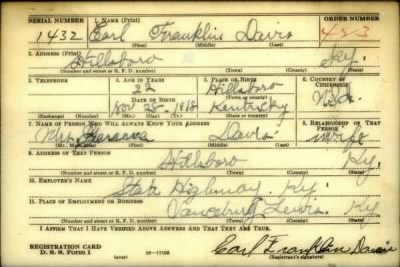 SERIAL NUMBER 1. NAME (Print) ORDER NUMBER
1432 Earl Franklin Davis 423
(First) (Middle) (Last)
2. ADDRESS (Print)
Hillsboro Ky.
(Number and street or R. F. D. number) (Town) (County) (State)
3. TELEPHONE 4. AGE IN YEARS 5. PLACE OF BIRTH 6. COUNTRY OF CITIZENSHIP
22 Hillsboro
DATE OF BIRTH (Town or county)
Nov 28 1918 Kentucky
(Exchange) (Number) (Mo.) (Day) (Yr.) (State or country)
7. NAME OF PERSON WHO WILL ALWAYS KNOW YOUR ADDRESS 8. RELATIONSHIP OF THAT PERSON
Mrs. Davis
(Mr., Mrs., Miss) (First) (Middle) (Last)
9. ADDRESS OF THAT PERSON
Hillsboro Ky.
(Number and street or R. F. D. number) (Town) (County) (State)
10. EMPLOYER'S NAME
State Highway. Ky.
11. PLACE OF EMPLOYMENT OR BUSINESS
Vanceburg Lewis. Ky
(Number and street or R. F. D. number) (Town) (County) (State)
I AFFIRM THAT I HAVE VERIFIED ABOVE ANSWERS AND THAT THEY ARE TRUE.
REGISTRATION CARD
D. S. S. Form 1 (over) Earl Franklin Davis
(Registrant's signature)